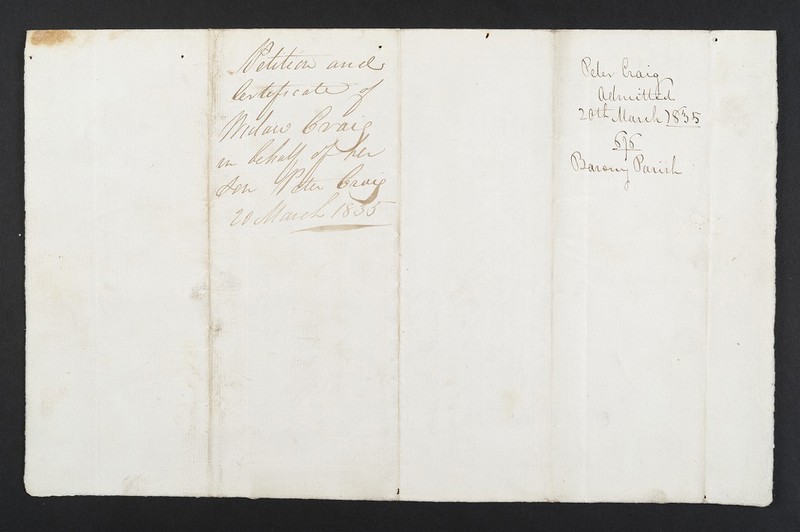 Petition and
Certificate of
Widow Craig
in behalf of her
Son Peter Craig
20 March 1835
Peter Craig
Admitted
20th March 1835
Barony Parish